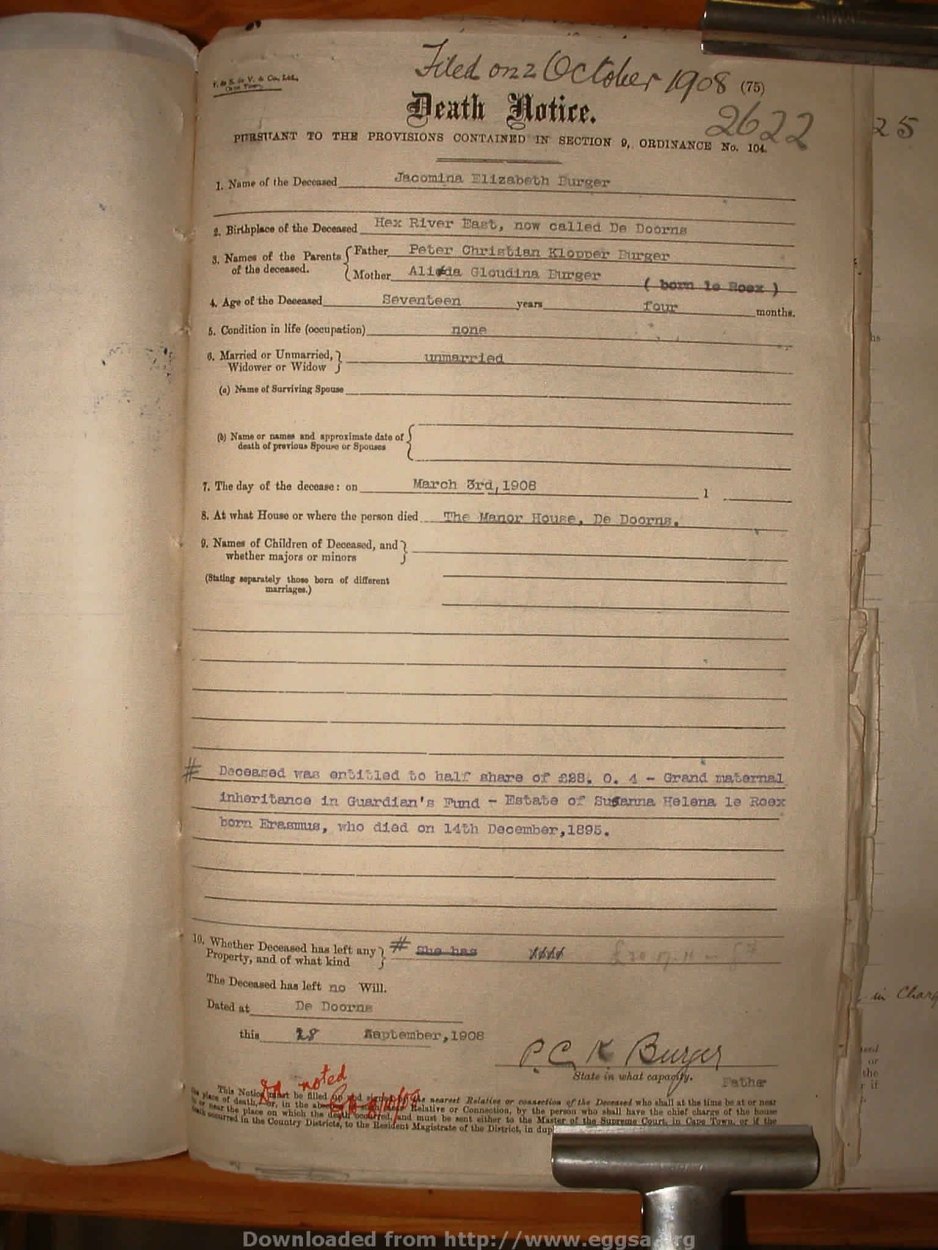 Filed on 2 October 1908 (75)
T. & S. & V. & Co., Ltd.,
Cape Town.
Death Notice.
2622
25
PURSUANT TO THE PROVISIONS CONTAINED IN SECTION 9, ORDINANCE No. 104.
1. Name of the Deceased Jacomina Elizabeth Burger
2. Birthplace of the Deceased Hex River East, now called De Doorns
3. Names of the Parents of the deceased. Father Peter Christian Klopper Burger
Mother Alida Gloudina Burger ( born le Roex )
4. Age of the Deceased Seventeen years four months.
5. Condition in life (occupation) none
6. Married or Unmarried, Widower or Widow unmarried
(a) Name of Surviving Spouse
(b) Name or names and approximate date of
death of previous Spouse or Spouses
7. The day of the decease: on March 3rd,1908 1
8. At what House or where the person died The Manor House, De Doorns.
9. Names of Children of Deceased, and
whether majors or minors
(Stating separately those born of different
marriages.)
# Deceased was entitled to half share of £28. 0. 4 - Grand maternal
inheritance in Guardian's Fund - Estate of Susanna Helena le Roex
born Erasmus, who died on 14th December,1895.
10. Whether Deceased has left any
Property, and of what kind # She has
The Deceased has left no Will.
Dated at De Doorns
this 28 September,1908
P. C. K Burger
State in what capacity. Father
noted
This Notice must be filled up and signed by the nearest Relative or connection of the Deceased who shall at the time be at or near
the place of death, or, in the absence of such Relative or Connection, by the person who shall have the chief charge of the house
or near the place on which the death occurred, and must be sent either to the Master of the Supreme Court, in Cape Town, or if the
death occurred in the Country Districts, to the Resident Magistrate of the District, in dup
in Charg
Downloaded from http://www.eggsa.org